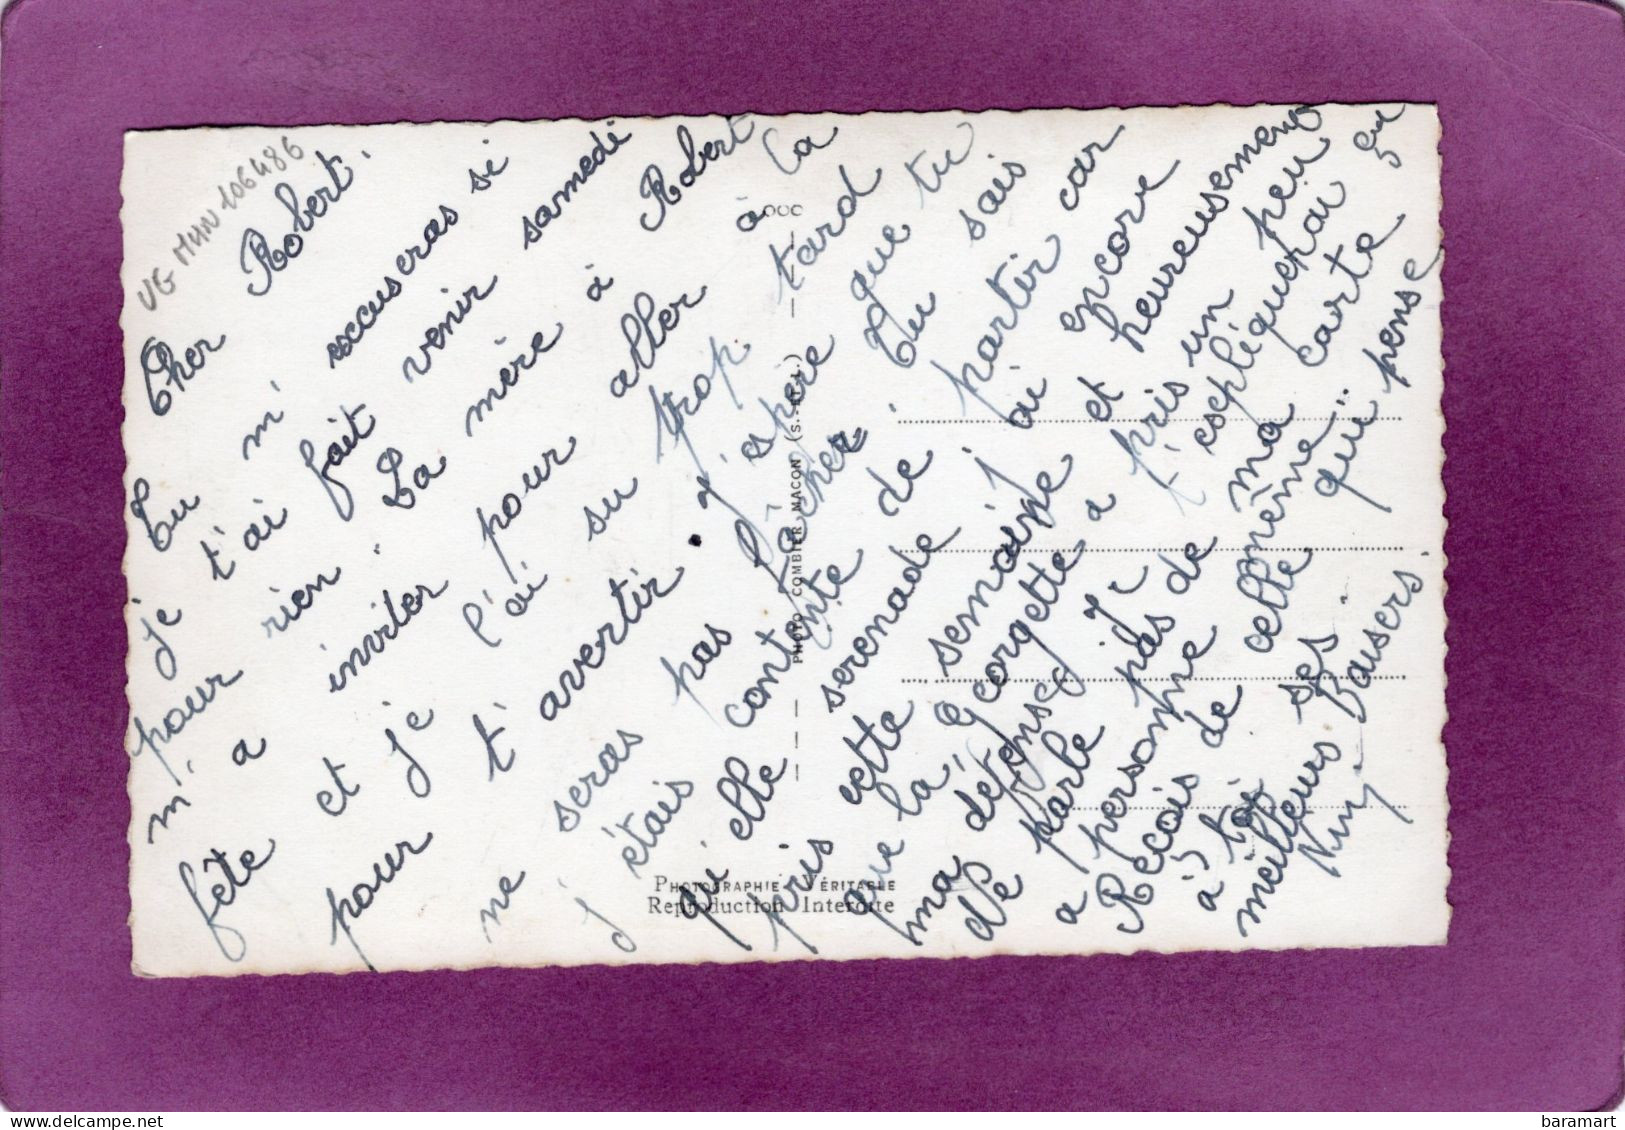 VG MHN 106486
Cher Robert.
Tu m'excuseras si
je t'ai fait venir samedi
pour rien. La mère à Robert
m'a inviter pour aller à la
fête et je l'ai su trop tard
pour t'avertir. J'espère que tu
ne seras pas fâcher. Tu sais
j'étais contente de partir car
qu'elle serenade j'ai encore
pris cette semaine et heureusement
que la Georgette a pris un peu
ma défense. Je t'espliquerai
De parle pas de ma carte
a personne
Reçois de celle
à toi
meilleurs Baisers.
qui pense
ses
PHOTO COMBIER MACON (S.-et-L.)
PHOTOGRAPHIE VÉRITABLE
Reproduction Interdite
baramart